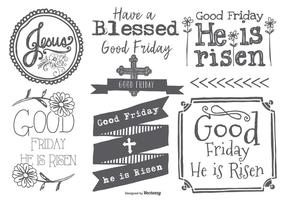 Jesus
Have a
Blessed
Good Friday
GOOD FRIDAY
Good Friday
He is
risen
GOOD
FRIDAY
He is Risen
Good Friday
He
is Risen
Good
Friday
He is Risen